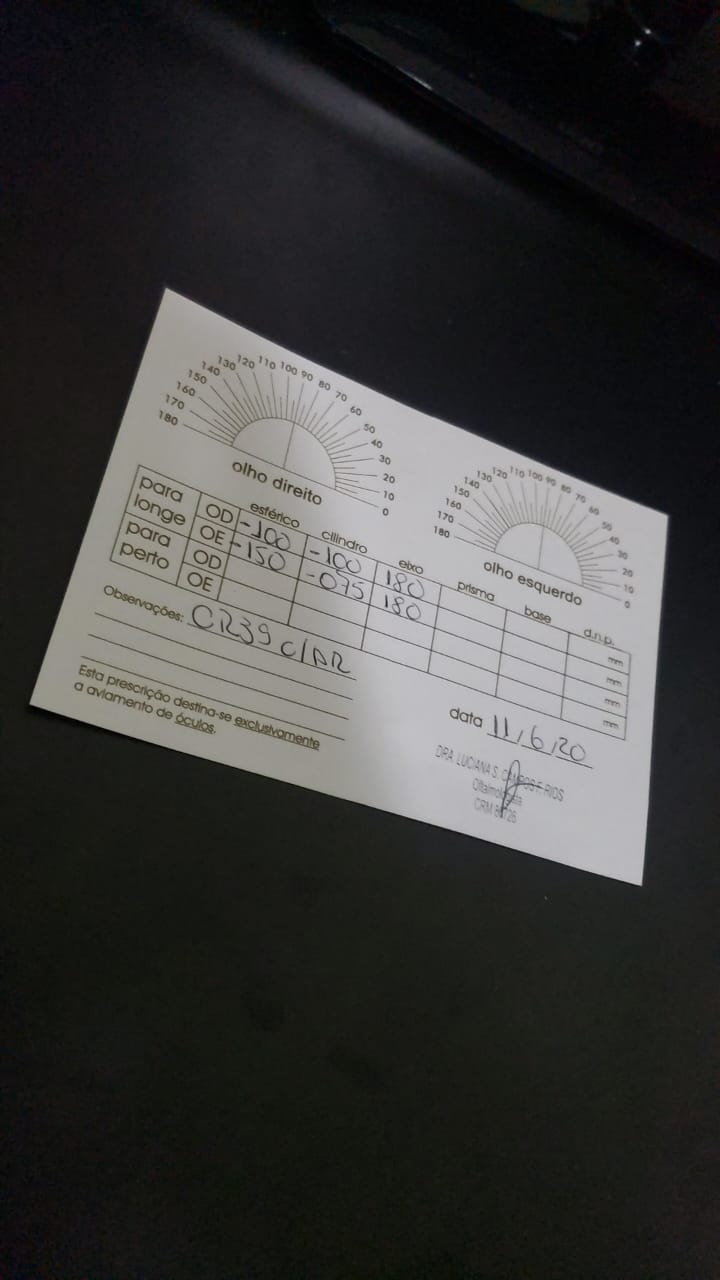 180 170 160 150 140 130 120 110 100 90 80 70 60 50 40 30 20 10 0
olho direito
180 170 160 150 140 130 120 110 100 90 80 70 60 50 40 30 20 10 0
olho esquerdo
esférico cilindro eixo prisma base d.n.p.
para longe OD -100 -100 180 mm
OE -150 -075 180 mm
para perto OD mm
OE mm
Observações: CR39 c/AR
Esta prescrição destina-se exclusivamente
a aviamento de óculos.
data 11/6/20
DRA. LUCIANA S. CAMPOS F. RIOS
Oftalmologista
CRM